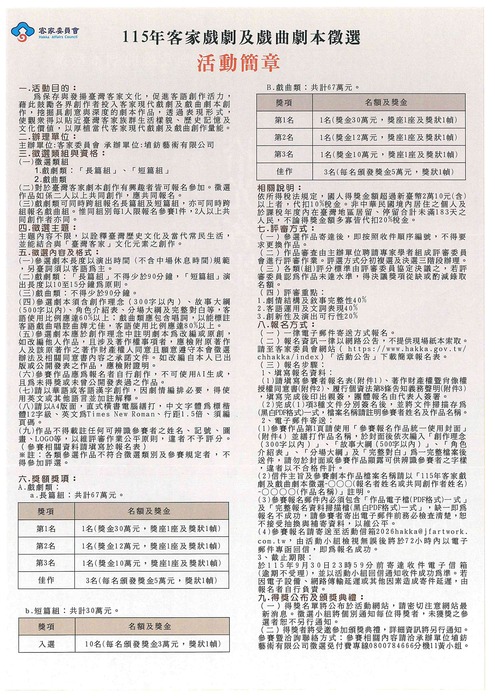 客家委員會
Hakka Affairs Council
115年客家戲劇及戲曲劇本徵選
活動簡章
一.活動目的:
為保存與發揚臺灣客家文化,促進客語創作活力,
藉此鼓勵各界創作者投入客家現代戲劇及戲曲劇本創
作,挖掘具創意與深度的劇本作品,透過表現形式,
使觀眾得以貼近臺灣客家族群生活樣貌、歷史記憶及
文化價值,以厚植當代客家現代戲劇及戲曲創作量能。
二.辦理單位:
主辦單位:客家委員會 承辦單位:埔紡藝術有限公司
三.徵選類組與資格:
(一)徵選類組
1.戲劇類:「長篇組」、「短篇組」
2.戲曲類
(二)對於臺灣客家劇本創作有興趣者皆可報名參加。徵選
作品如係二人以上共同創作,應共同報名。
(三)戲劇類可同時跨組報名長篇組及短篇組,亦可同時跨
組報名戲曲組。惟同組別每1人限報名參賽1件,2人以上共
同創作者亦同。
四.徵選主題:
主題內容不限,以詮釋臺灣歷史文化及當代常民生活,
並能結合與「臺灣客家」文化元素之創作。
五.徵選內容及格式:
(一)參選劇本長度以演出時間(不含中場休息時間)規範
,另臺詞須以客語為主。
(二)戲劇類:「長篇組」不得少於90分鐘,「短篇組」演
出長度以10至15分鐘為原則。
(三)戲曲類:不得少於90分鐘。
(四)參選劇本須含創作理念(300字以內)、故事大綱
(500字以內)、角色介紹表、分場大綱及完整對白等,客
語使用比例應達60%以上;戲曲類應包含唱詞,以能標註
客語戲曲唱腔曲牌尤佳,客語使用比例應達80%以上。
(五)參選劇本應於創作理念中註明劇本為改編或原創,
如改編他人作品,且涉及著作權事項者,應檢附原著作
人及該原著作之著作財產權人同意且願意遵守本會徵選
辦法及相關同意書內容之承諾文件。如改編自本人已出
版或公開發表之作品,應檢附證明。
(六)參賽作品應為報名者自行創作,不可使用AI生成,
且為未得獎或未曾公開發表過之作品。
(七)請以華語或客語漢字創作,因劇情編排必要,得使
用英文或其他語言並加註解釋。
(八)請以A4版面,直式橫書電腦繕打,中文字體為標楷
體12字級、英文為Times New Roman,行距1.5倍,須編
頁碼。
(九)作品不得載註任何可辨識參賽者之姓名、記號、圖
畫、LOGO等,以維評審作業公平原則,違者不予評分。
(十)參賽相關資料請詳填完整。
※註:各類參選作品不符合徵選類別及參賽規定者,不
得參加評選。
六.獎額獎項:
A.戲劇類:
a.長篇組:共計67萬元。
獎項 名額及獎金
第1名 1名(獎金30萬元,獎座1座及獎狀1幀)
第2名 1名(獎金12萬元,獎座1座及獎狀1幀)
第3名 1名(獎金10萬元,獎座1座及獎狀1幀)
佳作 3名(每名頒發獎金5萬元,獎狀1幀)
b.短篇組:共計30萬元。
獎項 名額及獎金
入選 10名(每名頒發獎金3萬元,獎狀1幀)
B.戲曲類:共計67萬元。
獎項 名額及獎金
第1名 1名(獎金30萬元,獎座1座及獎狀1幀)
第2名 1名(獎金12萬元,獎座1座及獎狀1幀)
第3名 1名(獎金10萬元,獎座1座及獎狀1幀)
佳作 3名(每名頒發獎金5萬元,獎狀1幀)
相關說明:
依所得稅法規定,國人得獎金額超過新臺幣2萬10元(含)
以上者,代扣10%稅金。非中華民國境內居住之個人及
於課稅年度內在臺灣地區居留、停留合計未滿183天之
人民,不論得獎金額多寡皆代扣20%稅金。
七.評審方式:
(一)參選作品寄達後,即按照收件順序編號,不得要
求更換作品。
(二)作品審查由主辦單位聘請專家學者組成評審委員
會進行評審作業。評選方式分初複選及決選三階段辦理。
(三)各類(組)評分標準由評審委員協定決議之,若評
審委員認為作品未達水準,得決議獎項從缺或酌減錄取
名額。
(四)評審重點:
1.劇情結構及敘事完整性40%
2.客語運用及文詞表現40%
3.創新性及演出可行性20%
八.報名方式:
(一)一律電子郵件寄送方式報名。
(二)報名資訊一律以網路公告,不提供現場紙本索取。
請至客家委員會網站(https://www.hakka.gov.tw/
chhakka/index)「活動公告」下載簡章報名表。
(三)報名步驟:
1、填寫報名資料:
(1)請填寫參賽者報名表(附件1)、著作財產權暨肖像權
授權同意書(附件2)、履行個資法第8條告知義務聲明(附件3)
,填寫完成後印出親簽,團體報名由代表人簽署。
(2)完成(1)項3種文件分別簽名後,並將文件掃描存為
(黑白PDF格式)一式,檔案名稱請註明參賽者姓名及作品名稱。
2、電子郵件寄送:
(1)參賽作品第1頁請使用「參賽報名作品統一使用封面」
(附件4)並繕打作品名稱,於封面後依次編入「創作理念
(300字以內)」、「故事大綱(500字以內)」、「角色
介紹表」、「分場大綱」及「完整對白」為一完整檔案後
送件,請勿於封面或參賽作品顯露可供辨識參賽者之字樣
,違者以不合格件計。
(2)信件主旨及參賽劇本作品檔案名稱請以「115年客家戲
劇及戲曲劇本徵選-○○○(報名者姓名或共同創作者姓名)
-○○○○(作品名稱)」註明。
(3)參賽報名郵件內必須包含「作品電子檔(PDF格式)一式」
及「完整報名資料掃描檔(黑白PDF格式)一式」,缺一即為
報名不成功,請參賽者寄出電子郵件前務必檢查清楚,恕
不接受抽換與補寄資料,以維公平。
(4)參賽報名請寄送至活動信箱2026hakka@jfartwork.
com.tw,由活動小組檢視無誤後將於72小時內以電子
郵件專函回信,即為報名成功。
3、截止期限:
於115年9月30日23時59分前寄達收件電子信箱
(逾期不受理),並以活動小組回信通知收件成功為準。若
因電子設備、網路傳輸延遲或其他因素造成寄件延遲,由
報名者自行負責。
九.得獎公布及頒獎典禮:
(一)得獎名單將公布於活動網站,請密切注意網站最
新消息。徵選小組將個別通知每位得獎者,未獲獎之參
選者恕不另行通知。
(二)得獎者將受邀參加頒獎典禮,詳細資訊將另行通知。
參賽暨洽詢聯絡方式:參賽相關內容請洽承辦單位埔紡
藝術有限公司徵選免付費專線0800784666分機11黃小姐。